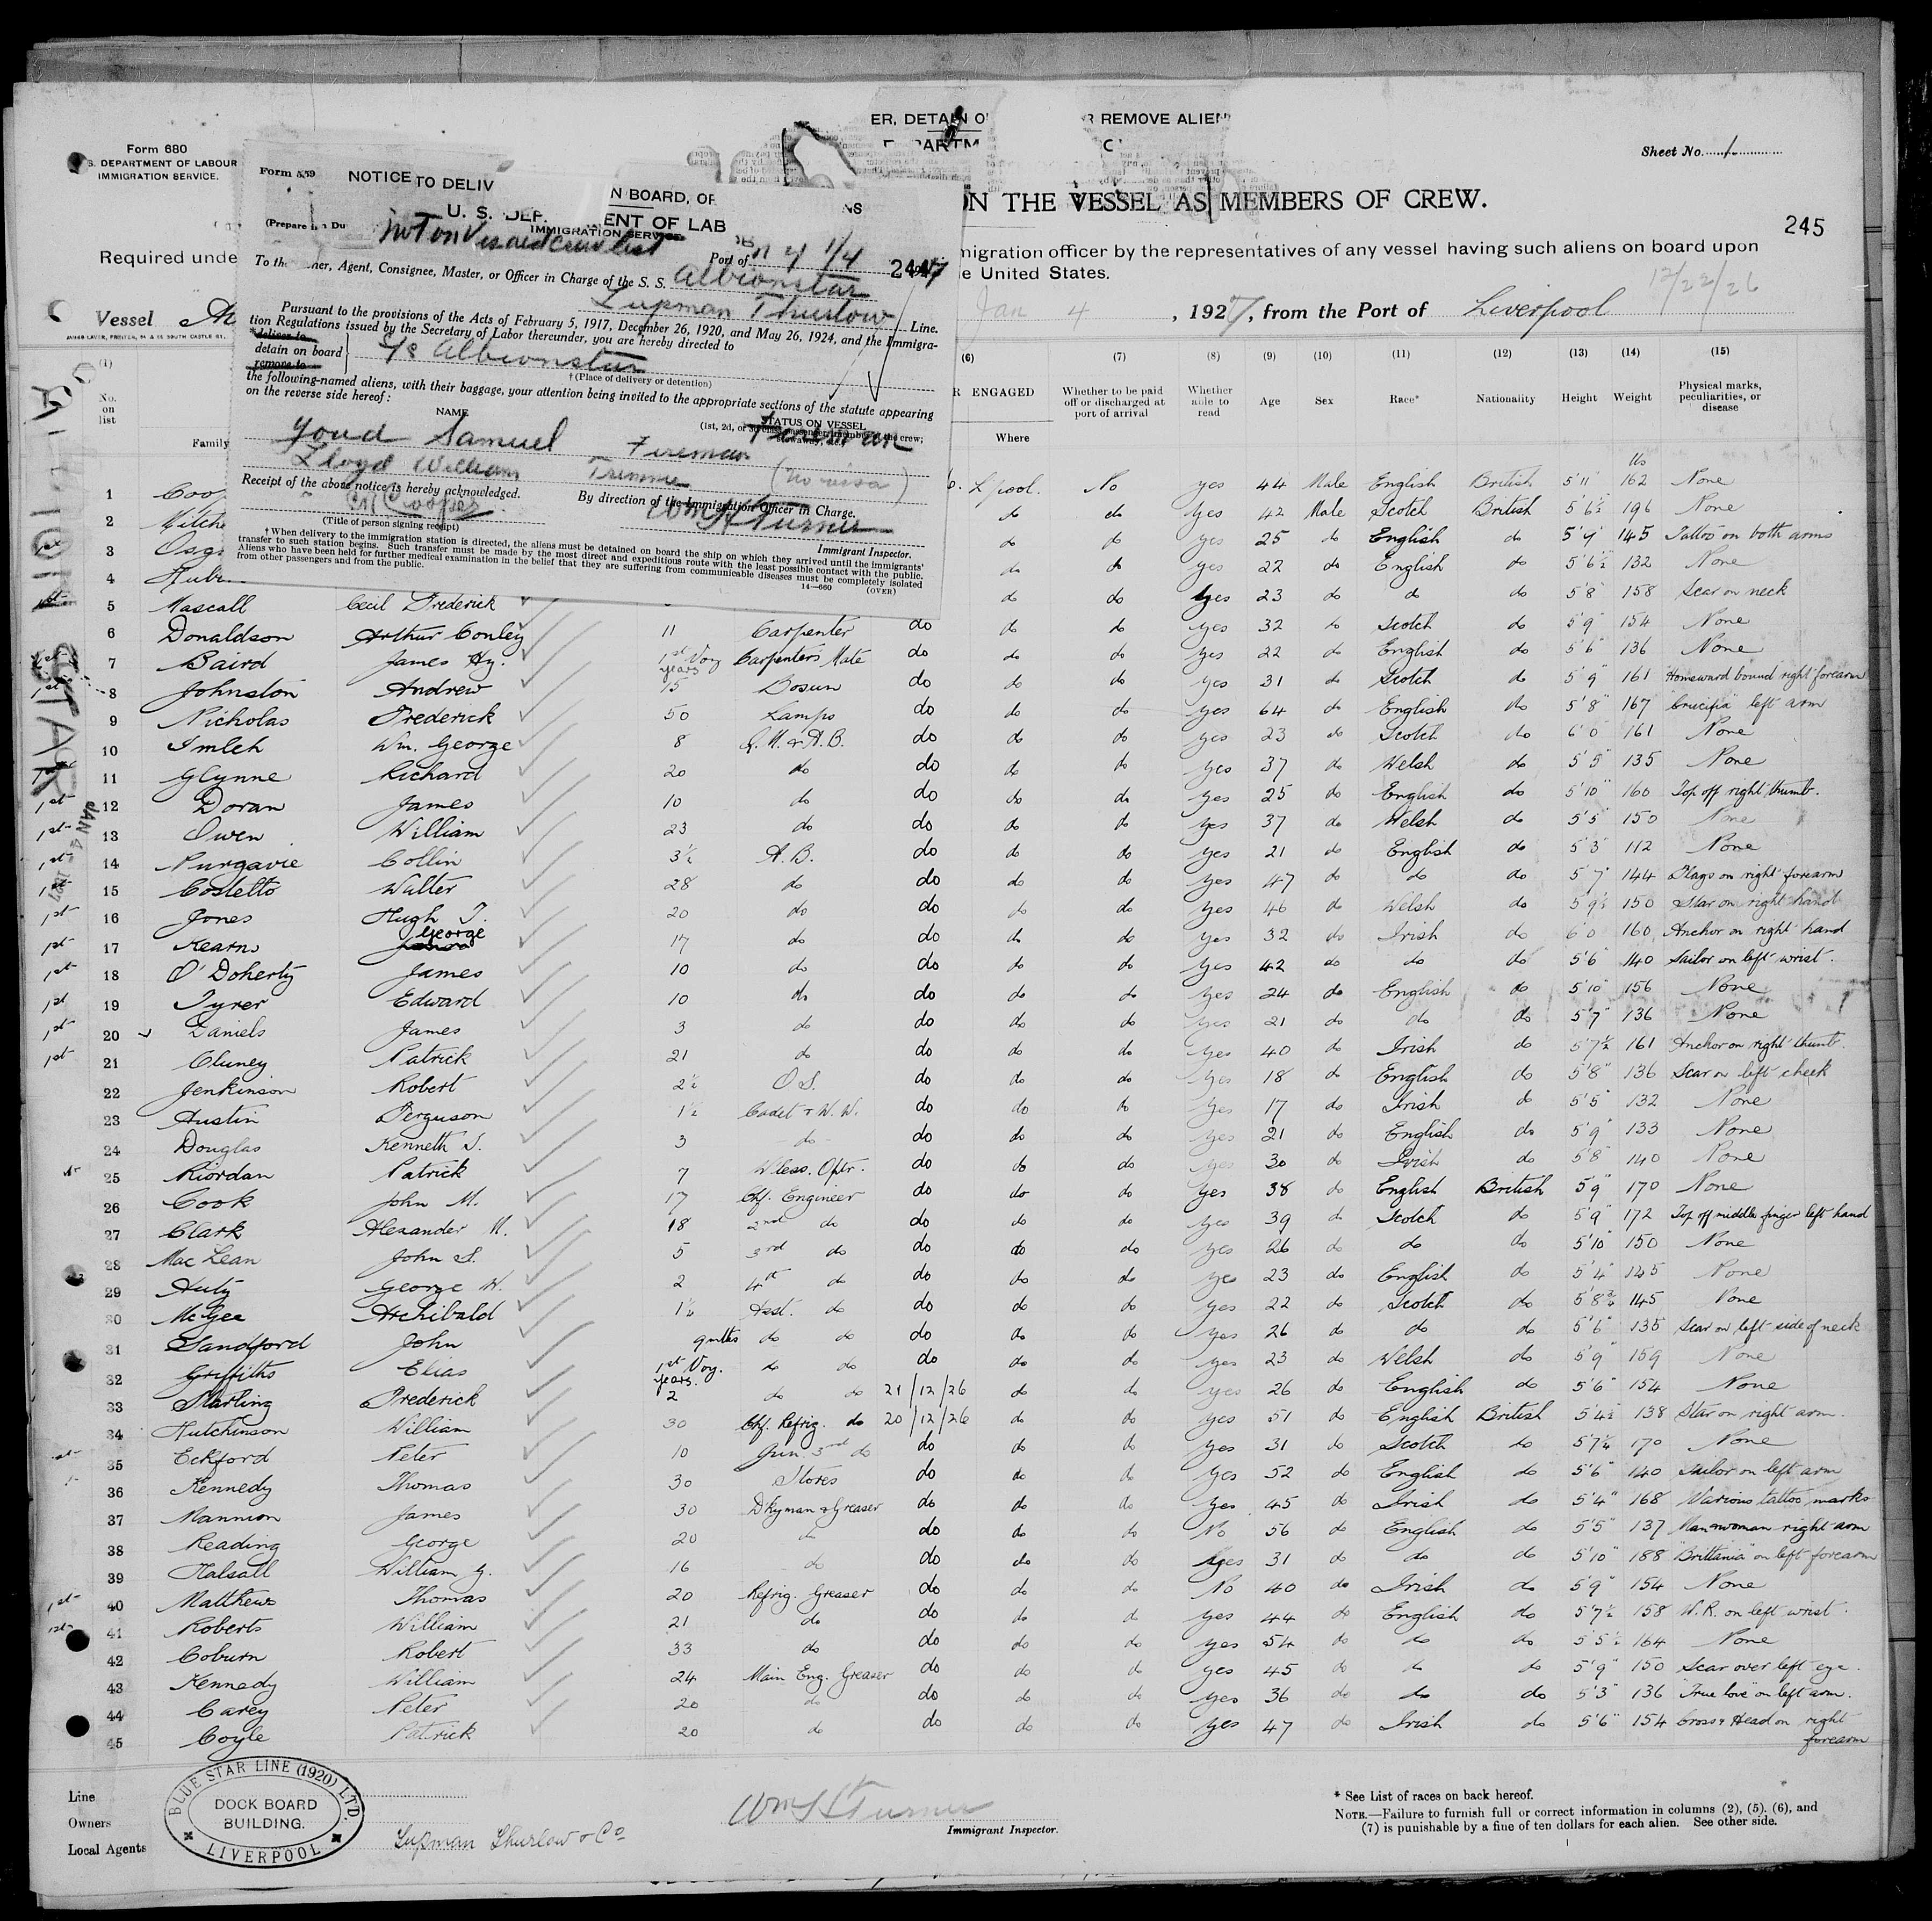 ER, DETAIN O R REMOVE ALIEN
Form 680
S. DEPARTMENT OF LABOUR
IMMIGRATION SERVICE.
Sheet No. 1
ON THE VESSEL AS MEMBERS OF CREW.
245
Required unde
migration officer by the representatives of any vessel having such aliens on board upon
e United States.
12/22/26
Vessel
Jan 4, 1927, from the Port of Liverpool
Form 559
NOTICE TO DELIV N BOARD, OR NS
U. S. DEP ENT OF LAB
IMMIGRATION SERVICE
Not on Visaed crew list
Port of
To the Owner, Agent, Consignee, Master, or Officer in Charge of the S. S. Albionstar
Lupman Thurlow Line.
Pursuant to the provisions of the Acts of February 5, 1917, December 26, 1920, and May 26, 1924, and the Immigra-
tion Regulations issued by the Secretary of Labor thereunder, you are hereby directed to
*deliver to
detain on board
remove to
S/S Albionstar
†(Place of delivery or detention)
the following-named aliens, with their baggage, your attention being invited to the appropriate sections of the statute appearing
on the reverse side hereof:
NAME
STATUS ON VESSEL
Youd Samuel Fireman
Lloyd William Trimmer (no visa)
Receipt of the above notice is hereby acknowledged.
By direction of the Immigration Officer in Charge.
C M Cooper
Wm H Turner
(Title of person signing receipt)
Immigrant Inspector.
†When delivery to the immigration station is directed, the aliens must be detained on board the ship on which they arrived until the immigrants'
transfer to such station begins. Such transfer must be made by the most direct and expeditious route with the least possible contact with the public.
Aliens who have been held for further medical examination in the belief that they are suffering from communicable diseases must be completely isolated
from other passengers and from the public.
14—660 (OVER)
ALBION STAR
JAN 4 1927
(1) (6) (7) (8) (9) (10) (11) (12) (13) (14) (15)
No. on list
Family
R ENGAGED
Where
Whether to be paid off or discharged at port of arrival
Whether able to read
Age
Sex
Race*
Nationality
Height
Weight
Physical marks, peculiarities, or disease
lbs
1 Coop L'pool. No yes 44 Male English British 5'11 162 None
2 Mitche do do yes 42 Male Scotch British 5'6½ 196 None
3 Osg do do yes 25 do English do 5'9 145 Tattoo on both arms
4 Hube do do yes 22 do English do 5'6½ 132 None
5 Mascall Cecil Frederick do do yes 23 do do do 5'8 158 Scar on neck
6 Donaldson Arthur Conley 11 Carpenter do do do yes 32 do Scotch do 5'9" 154 None
7 Baird James Hy. 1st Voy Carpenters Mate do do do yes 22 do English do 5'6 136 None
1st 8 Johnston Andrew years 15 Bosun do do do yes 31 do Scotch do 5'9" 161 "Homeward bound" right forearm
9 Nicholas Frederick 50 Lamps do do do yes 64 do English do 5'8" 167 "Crucifix" left arm
10 Imlch Wm. George 8 Q.M. & A.B. do do do yes 23 do Scotch do 6'0 161 None
11 Glynne Richard 20 do do do do yes 37 do Welsh do 5'5" 135 None
1st 12 Doran James 10 do do do do yes 25 do English do 5'10" 160 Top off right thumb.
1st 13 Owen William 23 do do do do yes 37 do Welsh do 5'5" 150 None
1st 14 Purgavie Collin 3½ A.B. do do do yes 21 do English do 5'3" 112 None
1st 15 Costello Walter 28 do do do do yes 47 do do do 5'7" 144 Flags on right forearm
1st 16 Jones Hugh T. 20 do do do do yes 46 do Welsh do 5'9½ 150 Star on right hand
1st 17 Kearns George 17 do do do do yes 32 do Irish do 6'0 160 Anchor on right hand
1st 18 O'Doherty James 10 do do do do yes 42 do do do 5'6 140 Sailor on left wrist.
1st 19 Tyrer Edward 10 do do do do yes 24 do English do 5'10" 156 None
1st 20 Daniels James 3 do do do do yes 21 do do do 5'7" 136 None
1st 21 Cluney Patrick 21 do do do do yes 40 do Irish do 5'7½ 161 Anchor on right thumb.
22 Jenkinson Robert 2½ O.S. do do do yes 18 do English do 5'8" 136 Scar on left cheek
23 Austin Ferguson 1½ Cadet & W.W. do do do yes 17 do Irish do 5'5" 132 None
24 Douglas Kenneth S. 3 do do do do yes 21 do English do 5'9" 133 None
25 Riordan Patrick 7 Wless. Optr. do do do yes 30 do Irish do 5'8" 140 None
26 Cook John M. 17 Chf. Engineer do do do yes 38 do English British 5'9" 170 None
27 Clark Alexander M. 18 2nd do do do do yes 39 do Scotch do 5'9" 172 Top off middle finger left hand
28 Mac Lean John S. 5 3rd do do do do yes 26 do do do 5'10" 150 None
29 Huty George W. 2 4th do do do do yes 23 do English do 5'4" 145 None
30 McGee Archibald 1½ Asst. do do do do yes 22 do Scotch do 5'8¾ 145 None
31 Sandford John 9 mths do do do do do yes 26 do do do 5'6" 135 Scar on left side of neck
32 Griffiths Elias 1st Voy. do do do do do yes 23 do Welsh do 5'9" 159 None
33 Starling Frederick years. 2 do do 21/12/26 do do yes 26 do English do 5'6" 154 None
34 Hutchinson William 30 Chf. Refrig. do 20/12/26 do do yes 51 do English British 5'4½ 138 Star on right arm.
35 Eckford Peter 10 Jun. 3rd do do do do yes 31 do Scotch do 5'7¼ 170 None
36 Kennedy Thomas 30 Stores do do do yes 52 do English do 5'6" 140 Sailor on left arm
37 Mannion James 30 Dkyman & Greaser do do do yes 45 do Irish do 5'4" 168 Various tattoo marks
38 Reading George 20 do do do do No 56 do English do 5'5" 137 Man & woman right arm
39 Halsall William G. 16 do do do do yes 31 do do do 5'10" 188 "Brittania" on left forearm
1st 40 Matthews Thomas 20 Refrig. Greaser do do do No 40 do Irish do 5'9" 154 None
1st 41 Roberts William 21 do do do do yes 44 do English do 5'7½ 158 W.R. on left wrist.
42 Coburn Robert 33 do do do do yes 54 do do do 5'5½ 164 None
43 Kennedy William 24 Main Eng. Greaser do do do yes 45 do do do 5'9" 150 Scar over left eye.
44 Carey Peter 20 do do do do yes 36 do do do 5'3" 136 "True love" on left arm.
45 Coyle Patrick 20 do do do do yes 47 do Irish do 5'6" 154 Cross & Head on right forearm
Line
Owners
Local Agents Lupman Thurlow & Co
BLUE STAR LINE (1920) LTD.
DOCK BOARD
BUILDING.
LIVERPOOL
Wm H Turner
Immigrant Inspector.
* See List of races on back hereof.
NOTE.—Failure to furnish full or correct information in columns (2), (5), (6), and
(7) is punishable by a fine of ten dollars for each alien. See other side.